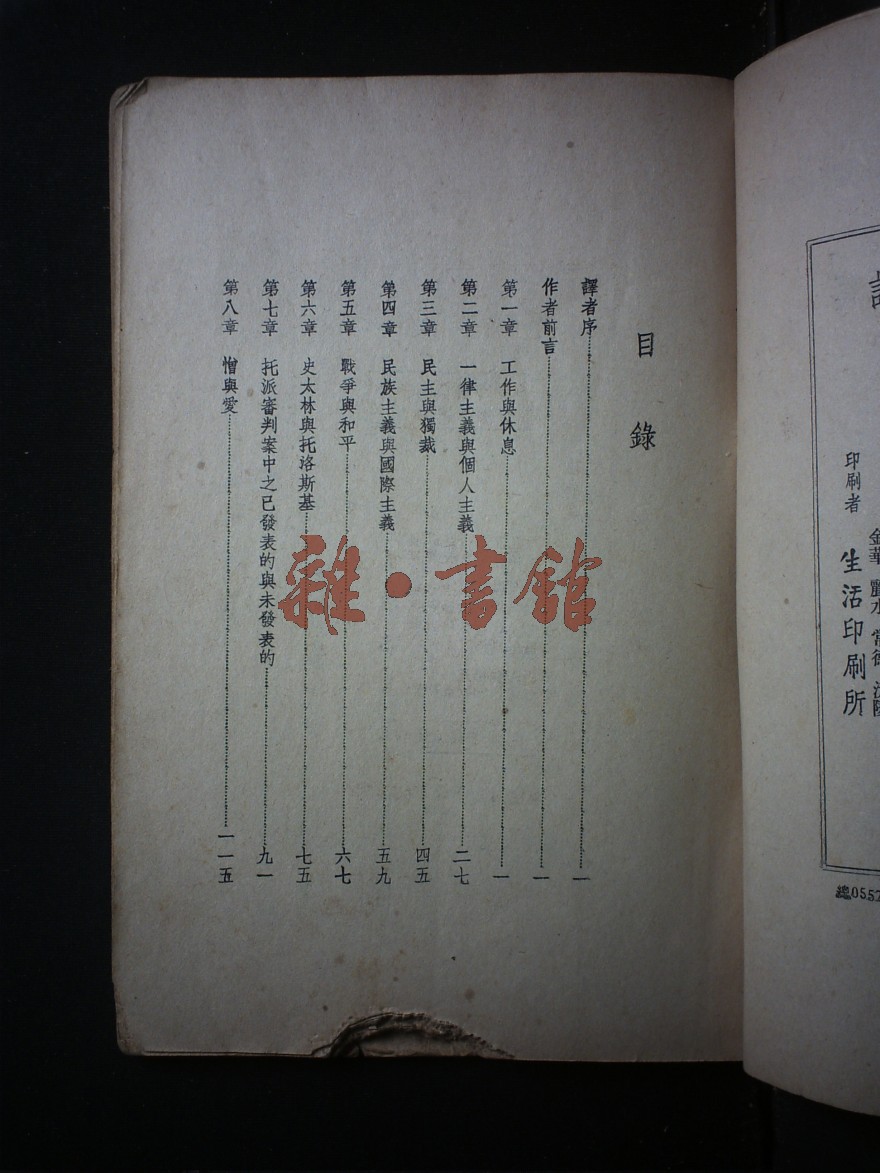 印刷者
生活印刷所
總0557
目錄
譯者序 一
作者前言 一
第一章 工作與休息 一
第二章 一律主義與個人主義 二七
第三章 民主與獨裁 四五
第四章 民族主義與國際主義 五九
第五章 戰爭與和平 六七
第六章 史太林與托洛斯基 七五
第七章 托派審判案中之已發表的與未發表的 九一
第八章 憎與愛 一一五
雜·書館